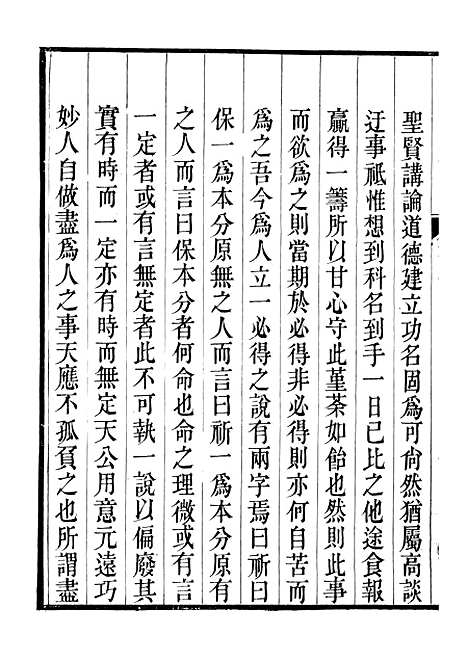 聖賢講論道德建立功名固爲可尙然猶屬高談
迂事祗惟想到科名到手一日已比之他途食報
贏得一籌所以甘心守此堇荼如飴也然則此事
而欲爲之則當期於必得非必得則亦何自苦而
爲之吾今爲人立一必得之說有兩字焉曰祈曰
保一爲本分原無之人而言曰祈一爲本分原有
之人而言曰保本分者何命也命之理微或有言
一定者或有言無定者此不可執一說以偏廢其
實有時而一定亦有時而無定天公用意元遠巧
妙人自做盡爲人之事天應不孤負之也所謂盡